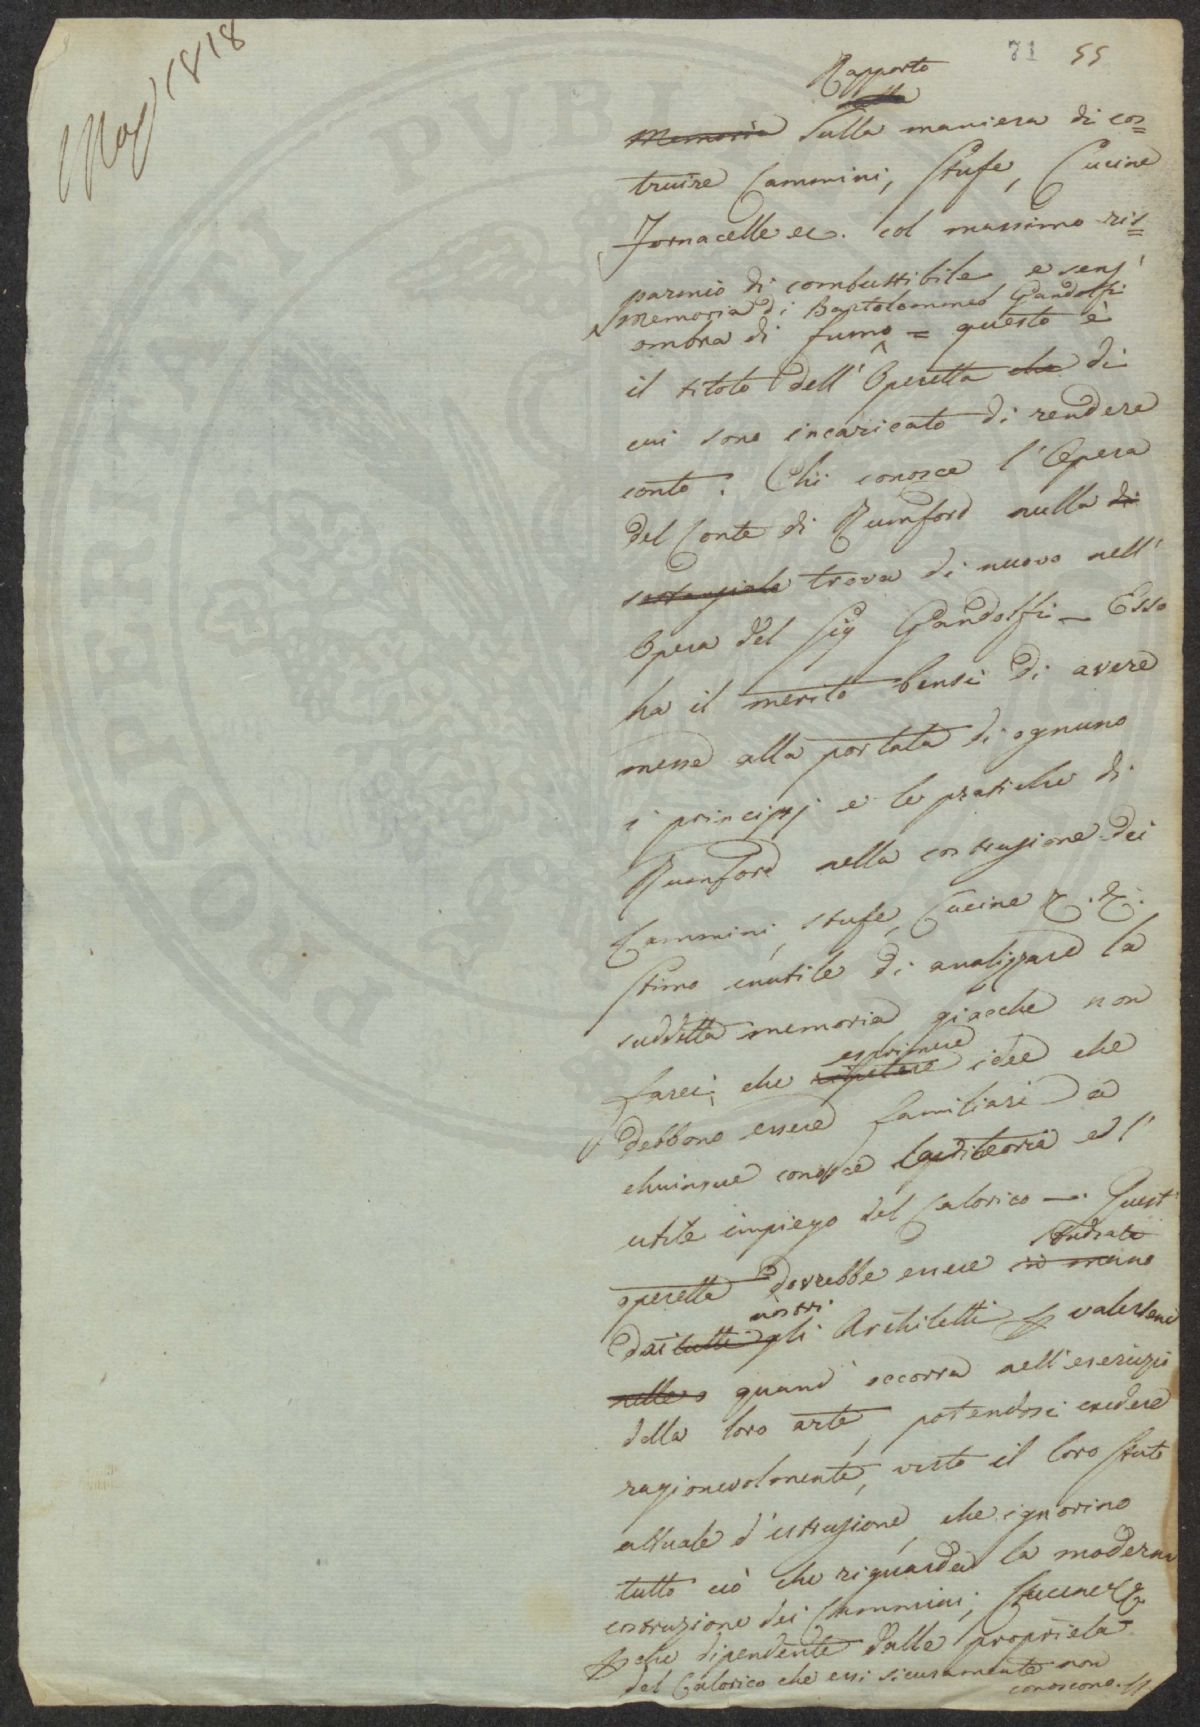 Mag 1818
71 55
Rapporto
Memoria Sulla maniera di cos=
truire Cammini, Stufe, Cucine
Fornacelle ec. col massimo ris=
parmio di combustibile e senz'
Memoria di Bartolommeo Gandolfi
ombra di fumo = questo è
il titolo dell' Operetta che di
cui sono incaricato di rendere
conto. Chi conosce l'Opera
del Conte di Rumford nulla di
sostanziale trova di nuovo nell'
Opera del Sig Gandolfi — Esso
ha il merito bensì di avere
messe alla portata di ognuno
i principj e le pratiche di
Rumford nella costruzione dei
Cammini, stufe, Cucine &. &.
Stimo inutile di analizzare la
suddetta memoria giacche non
esprimere
farei, che ripetere idee che
debbono essere familiari a
chiunque conosce la teoria ed l'
utile impiego del Calorico —. Quest'
studiata
operetta dovrebbe essere in mano
nostri
dai tutti gli Architetti valersene
nelle quand' occorra nell'esercizio
della loro arte, potendosi credere
ragionevolmente, visto il loro stato
attuale d'istruzione, che ignorino
tutto ciò che riguarda la moderna
costruzione dei Cammini, Cucine &
che dipendente dalle proprietà
del Calorico che essi sicuramente non
conoscono.
PROSPERITATI PUBLICAE